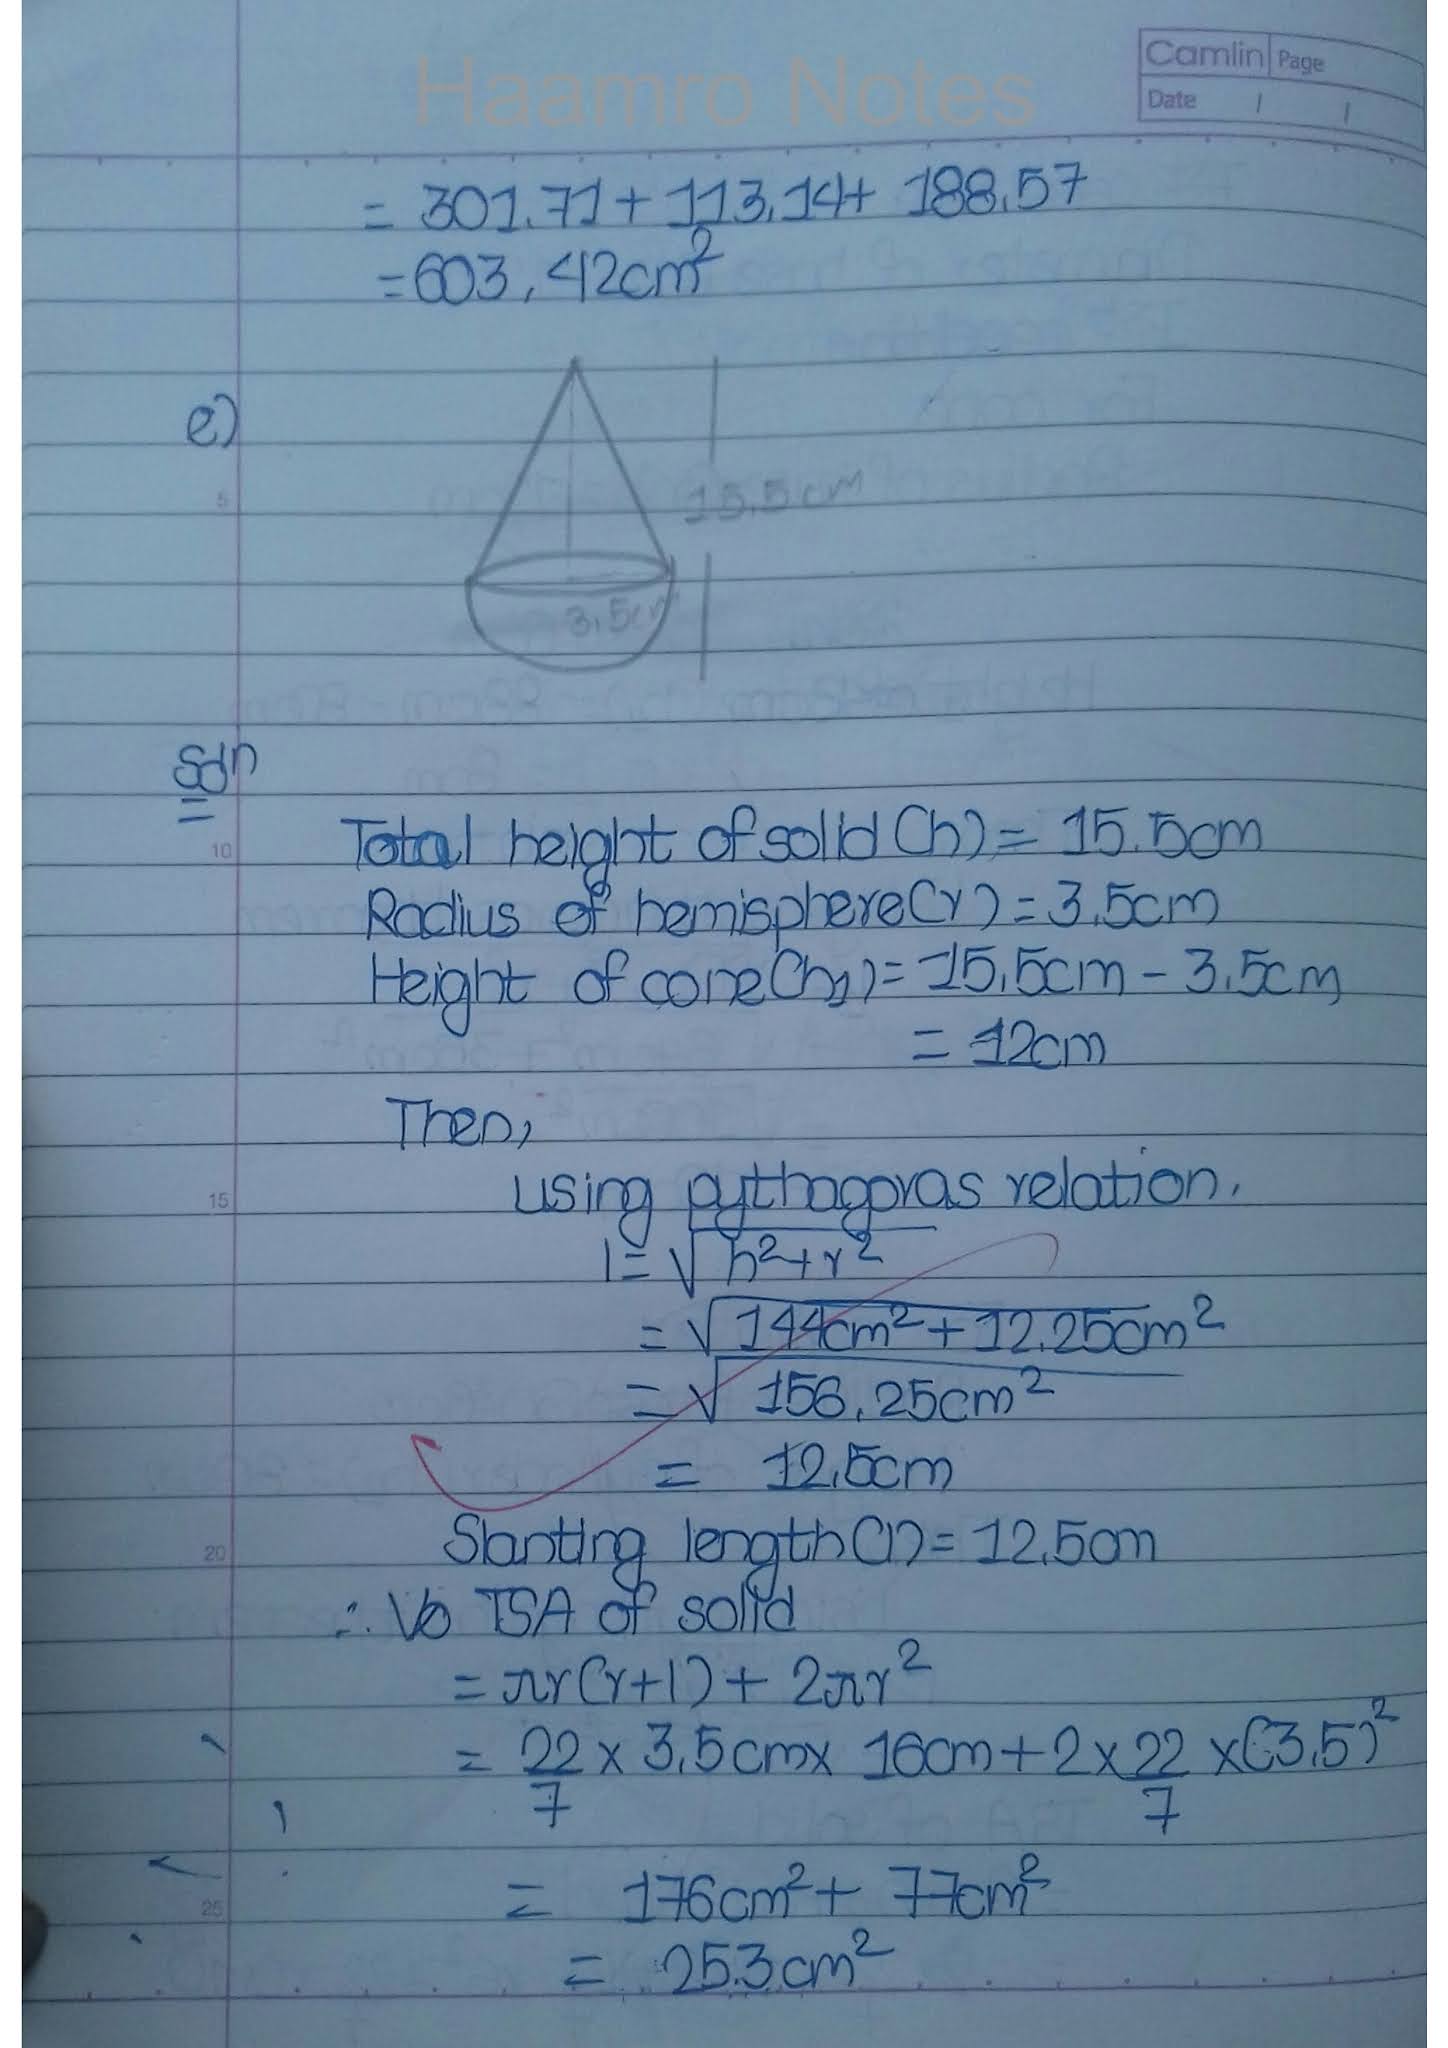 Haamro Notes
Camlin Page
Date / /
= 301.71 + 113.14 + 188.57
= 603.42cm²
e)
15.5cm
3.5cm
Soln
Total height of solid (h) = 15.5cm
Radius of hemisphere (r) = 3.5cm
Height of cone (h1) = 15.5cm - 3.5cm
= 12cm
Then,
using pythagoras relation.
l = √h²+r²
= √144cm² + 12.25cm²
= √156.25cm²
= 12.5cm
Slanting length (l) = 12.5cm
∴ Vo TSA of solid
= πr(r+l) + 2πr²
= 22/7 × 3.5cm × 16cm + 2 × 22/7 × (3.5)²
= 176cm² + 77cm²
= 253cm²
5
10
15
20
25